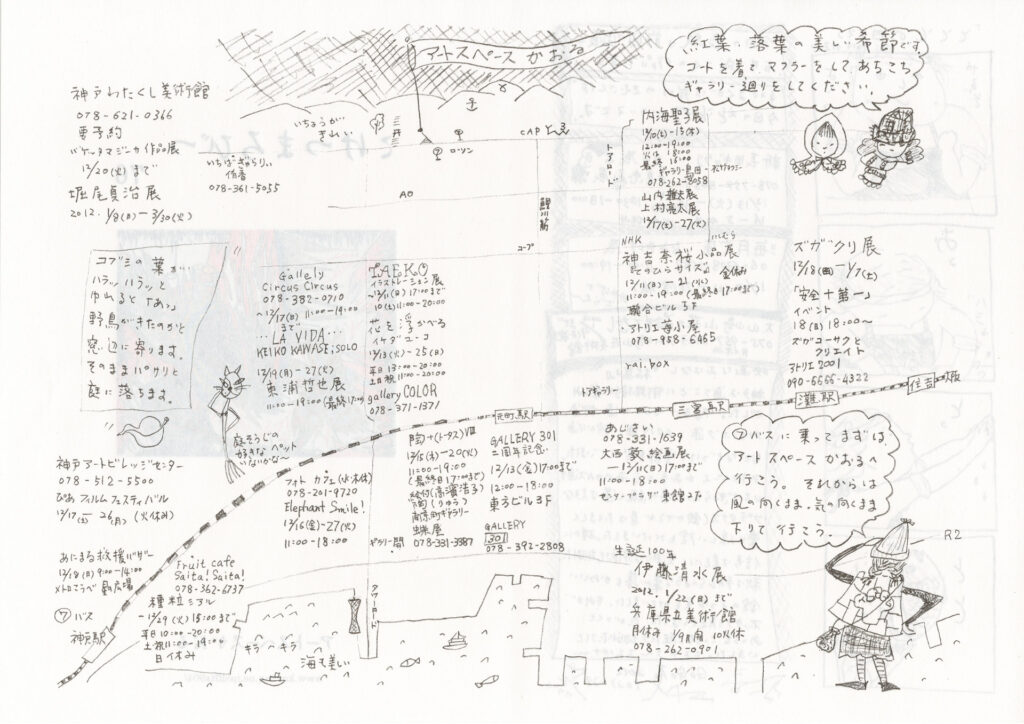 アートスペース かおる
紅葉・落葉の美しい季節です。
コートを着て、マフラーをして あちこち
ギャラリー廻りをしてください。
神戸わたくし美術館
078-621-0366
要予約
バケッタマジーカ 作品展
12/20(火)まで
堀尾貞治展
2012. 1/8(日)ー3/30(火)
いちょうが
きれい
三井
いちばぎゃらりぃ
侑香
078-361-5055
ローソン
CAP
トアロード
鯉川筋
コープ
内海聖子展
12:00-19:00
火は 18:00
最終 16:00
ギャラリー島田
078-262-8058
山内雅夫展
上村亮太展
12/17(土)-27(火)
NHK
神吉奈桜小品展
てのひらサイズ
12/11(日)-21(水)
11:00-19:00(最終日17:00まで)
聯合ビル3F
・アトリエ苺小屋
078-958-6465
rai.box
ズガガクリ展
12/18(日)-1/7(土)
「安全十第一」
イベント
18(日) 18:00〜
ズガコーサクと
クリエイト
アトリエ2001
090-6666-4322
コブシの葉が…
ハラッ ハラッと
ゆれると「あっ」
野鳥がきたのかと
窓辺に寄ります。
そのままパサリと
庭に落ちます。
Gallely
Circus Circus
078-382-0710
〜12/17(日) 11:00-19:00
まで
…LA VIDA…
KEIKO KAWASE; SOLO
12/19(月)-27(火)
東浦哲也展
11:00-19:00(最終17:00)
TAEKO
イラストレーション展
〜12/11(日)17:00まで
10(土)11:00-20:00
花を浮かべる
イケダユーコ
12/13(火)-25(日)
平日13:00-20:00
土日祝11:00-20:00
gallery COLOR
078-371-1371
庭そうじの
好きなペット
いないかな〜
元町駅
トアギャラリー
三宮駅
灘駅
住吉
神戸アートビレッジセンター
078-512-5500
ぴあフィルムフェスティバル
12/17(土)-26(月)(火休み)
フォト カフェ(水木休)
078-201-9720
Elephant Smile!
12/16(金)-27(火)
11:00-18:00
陶+(トータス)VIII
12/15(木)-20(火)
11:00-19:00
(最終日17:00まで)
絵付(高濱浩子)
陶(りゅう)
南京町ギャラリー
蝶屋
ギャラリー間 078-331-3387
GALLERY 301
二周年記念
12/13(金)17:00まで
12:00-18:00
東方ビル3F
GALLERY
301
078-392-2808
あじさい
078-331-1639
大西敦 絵画展
ー12/11(日)17:00まで
11:00-18:00
センタープラザ東館2F
⑦バスに乗って まずは
アートスペースかおるへ
行こう。それからは
風の向くまま。気の向くまま
下りて行こう。
R2
あにまる救援バザー
12/18(日)9:00-14:00
メトロこうべ 星の広場
⑦バス
神戸駅
Fruit cafe
Saita! Saita!
078-362-6737
種粒シアル
ー12/29(火)15:00まで
平日10:00-20:00
土祝11:00-19:00
日休み
タワーロード
キラ キラ
海も美しい
生誕100年
伊藤清永展
2012. 1/22(日)まで
兵庫県立美術館
月休み 1/9月開 10火休
078-262-0901